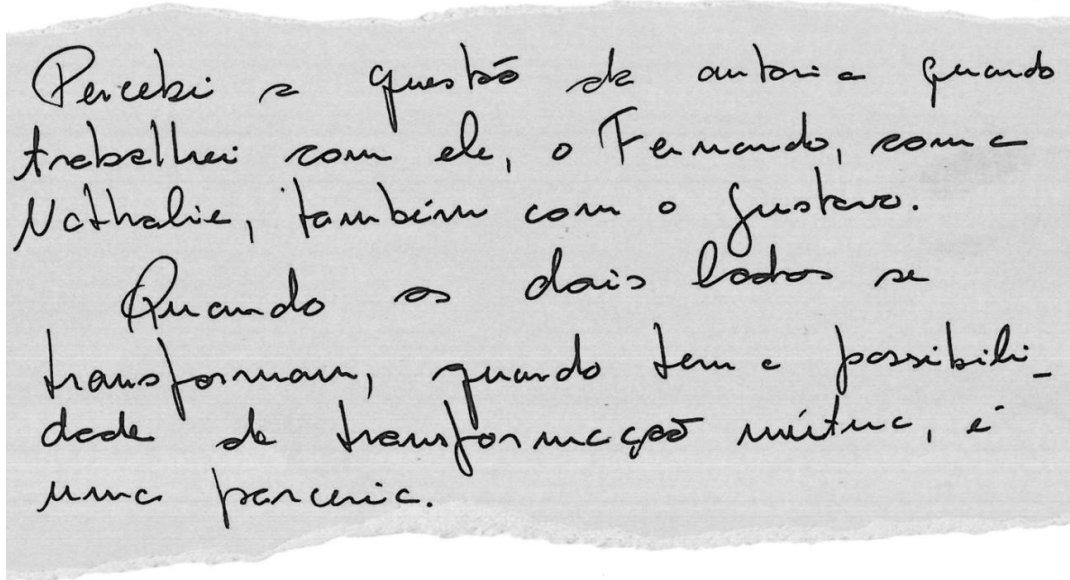 Percebi a questão da autoria quando
trabalhei com ele, o Fernando, com a
Nathalie, também com o Gustavo.
Quando os dois lados se
transformam, quando tem a possibili-
dade da transformação mútua, é
uma parceria.